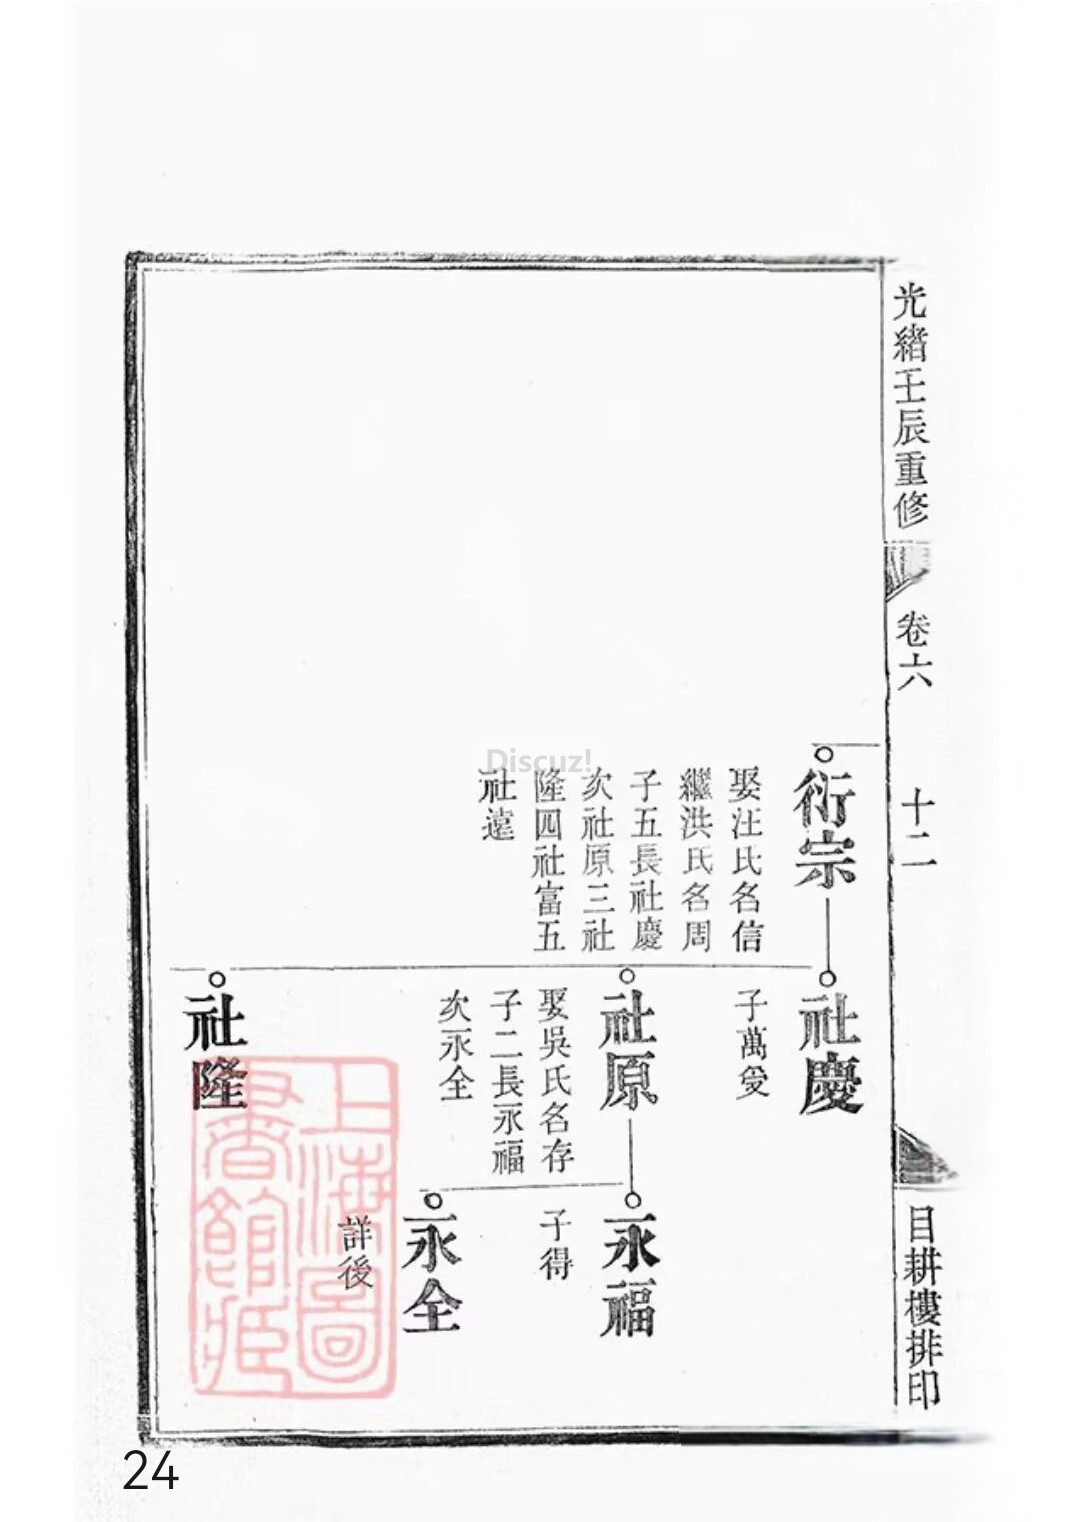 光緒壬辰重修
卷六
十二
目耕樓排印
衍宗
娶汪氏名信
繼洪氏名周
子五長社慶
次社原三社
隆四社富五
社遠
社慶
子萬受
社原
娶吳氏名存
子二長永福
次永全
社隆
永福
子得
永全
詳後
上海圖
書館藏
Discuz!
24